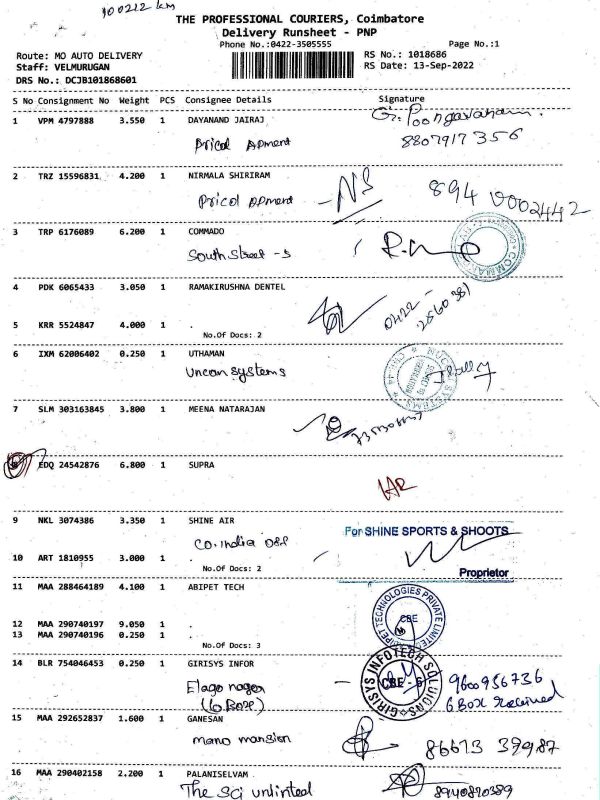 100212 km
THE PROFESSIONAL COURIERS, Coimbatore
Delivery Runsheet - PNP
Phone No.:0422-3505555 Page No.:1
Route: MO AUTO DELIVERY RS No.: 1018686
Staff: VELMURUGAN RS Date: 13-Sep-2022
DRS No.: DCJB101868601
S No Consignment No Weight PCS Consignee Details Signature
1 VPM 4797888 3.550 1 DAYANAND JAIRAJ
Pricol Apment 8807917356
2 TRZ 15596831 4.200 1 NIRMALA SHIRIRAM
Pricol Apment NS 894 0002442
3 TRP 6176089 6.200 1 COMMADO
South Street -5
4 PDK 6065433 3.050 1 RAMAKIRUSHNA DENTEL
0422 -
2560381
5 KRR 5524847 4.000 1 .
No.Of Docs: 2
6 IXM 62006402 0.250 1 UTHAMAN
Uncon systems
7 SLM 303163845 3.800 1 MEENA NATARAJAN
8 EDQ 24542876 6.800 1 SUPRA
9 NKL 3074386 3.350 1 SHINE AIR
Co.india off
For SHINE SPORTS & SHOOTS
10 ART 1810955 3.000 1 .
No.Of Docs: 2
Proprietor
11 MAA 288464189 4.100 1 ABIPET TECH
ABIPET TECHNOLOGIES PRIVATE LIMITED
CBE
12 MAA 290740197 9.050 1 .
13 MAA 290740196 0.250 1 .
No.Of Docs: 3
14 BLR 754046453 0.250 1 GIRISYS INFOR
GIRISYS INFOTECH SOLUTIONS
CBE - 6
Elago nager 9600956736
(6 Box) 6 Box received
15 MAA 292652837 1.600 1 GANESAN
mano mansion 86673 39987
16 MAA 290402158 2.200 1 PALANISELVAM
The SCi unlinted 8940820389